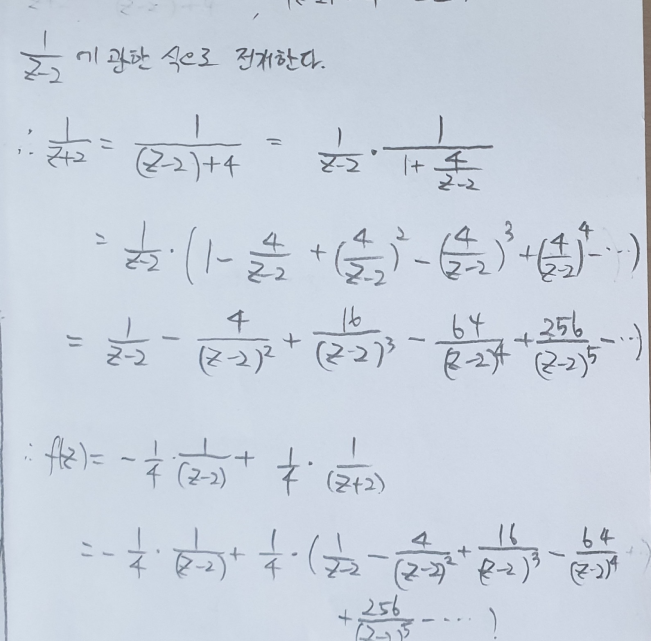 1/(z-2) 에 관한 식으로 전개한다.
∴ 1/(z+2) = 1/((z-2)+4) = 1/(z-2) · 1/(1+4/(z-2))
= 1/(z-2) · (1 - 4/(z-2) + (4/(z-2))^2 - (4/(z-2))^3 + (4/(z-2))^4 - ···)
= 1/(z-2) - 4/(z-2)^2 + 16/(z-2)^3 - 64/(z-2)^4 + 256/(z-2)^5 - ···)
∴ f(z) = - 1/4 · 1/(z-2) + 1/4 · 1/(z+2)
= - 1/4 · 1/(z-2) + 1/4 · (1/(z-2) - 4/(z-2)^2 + 16/(z-2)^3 - 64/(z-2)^4
+ 256/(z-2)^5 - ····)